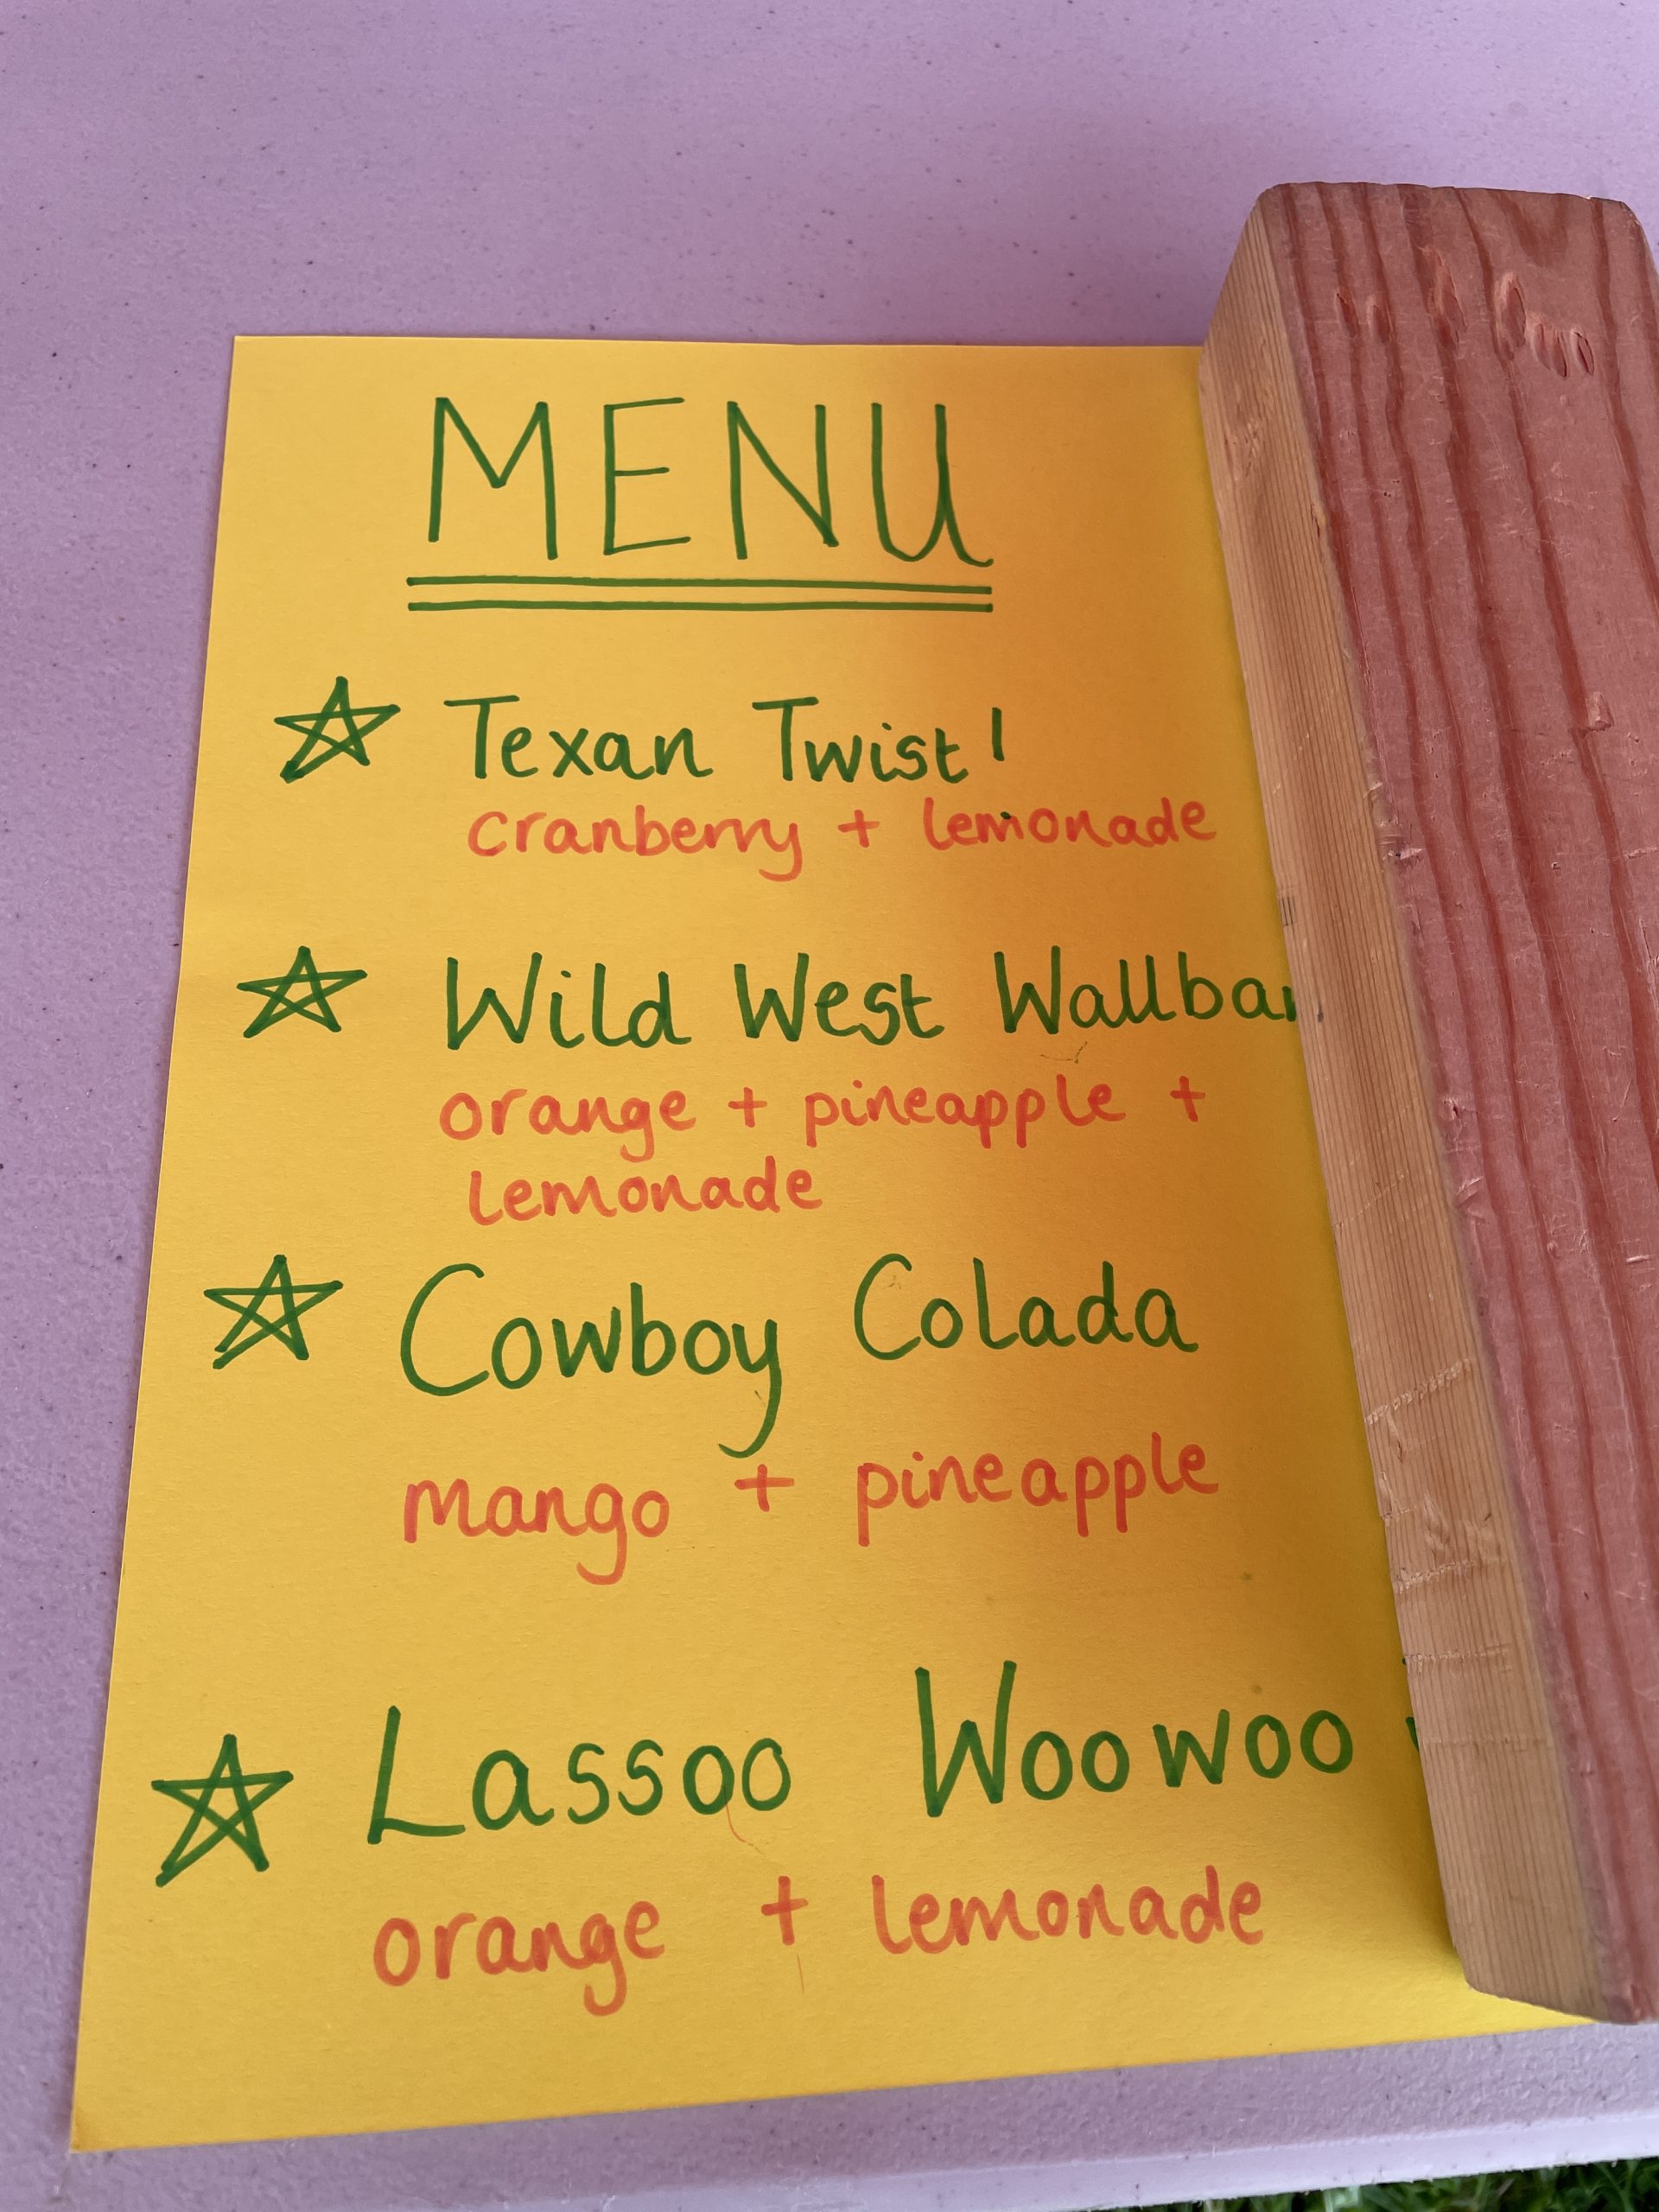 MENU
Texan Twist!
cranberry + lemonade
Wild West
orange + pineapple +
lemonade
Cowboy Colada
mango + pineapple
Lassoo Woowoo
orange + lemonade